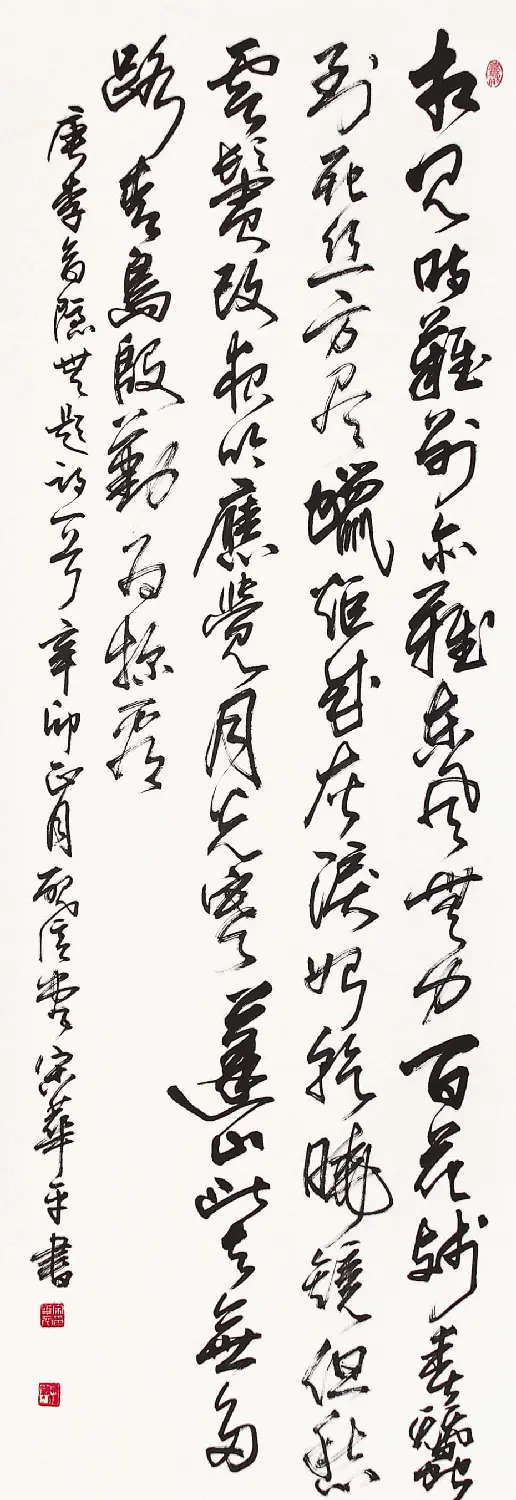 相見時難別亦難東風無力百花殘春蠶
到死絲方盡蠟炬成灰淚始乾曉鏡但愁
雲鬢改夜吟應覺月光寒蓬山此去無多
路青鳥殷勤為探看
唐李商隱無題詩一首辛卯正月宋華平書